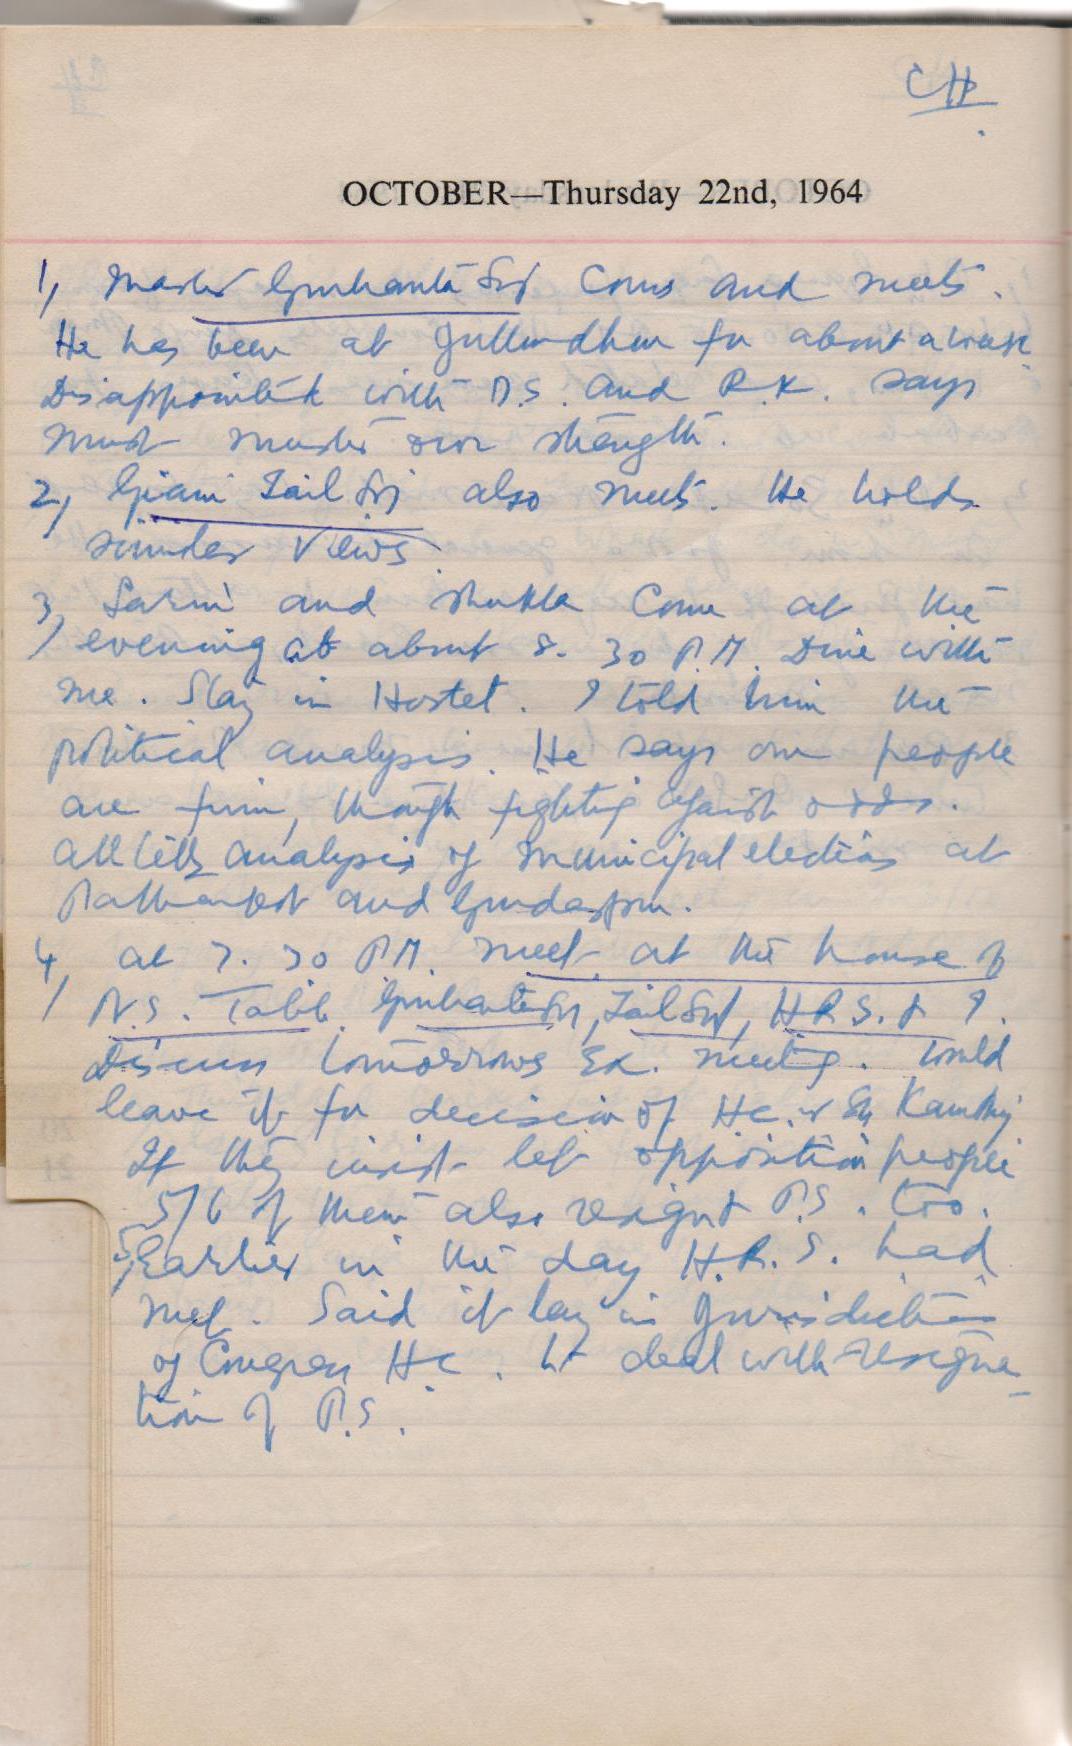 CH
OCTOBER—Thursday 22nd, 1964
1, Master Gurbanta Sing Comes and meets.
He has been at Jullundhur for about a week
Disappointed with D.S. and R.K. says
must muster own strength.
2, Giani Zail Sing also meets. He holds
similar views.
3, Sarin and Shukla Come at the
evening at about 8.30 P.M. Dine with
me. Stay in Hostel. I told him the
political analysis. He says our people
are firm, though fighting against odds.
analysis of municipal elections at
Pathankot and Gurdaspur.
4, at 7.30 P.M. meet at the house of
N.S. Talib. Gurbanta Sing, Zail Sing, H.R.S. & I.
Discuss tomorrows Ex. meeting. Could
leave it for decision of H.C. or Sh
If they insist let opposition people
5/6 of them also resign & P.S. too.
5, Earlier in the day H.R.S. had
met. Said it lay in Jurisdiction
of Congress H.C. to deal with resigna-
tion of P.S.